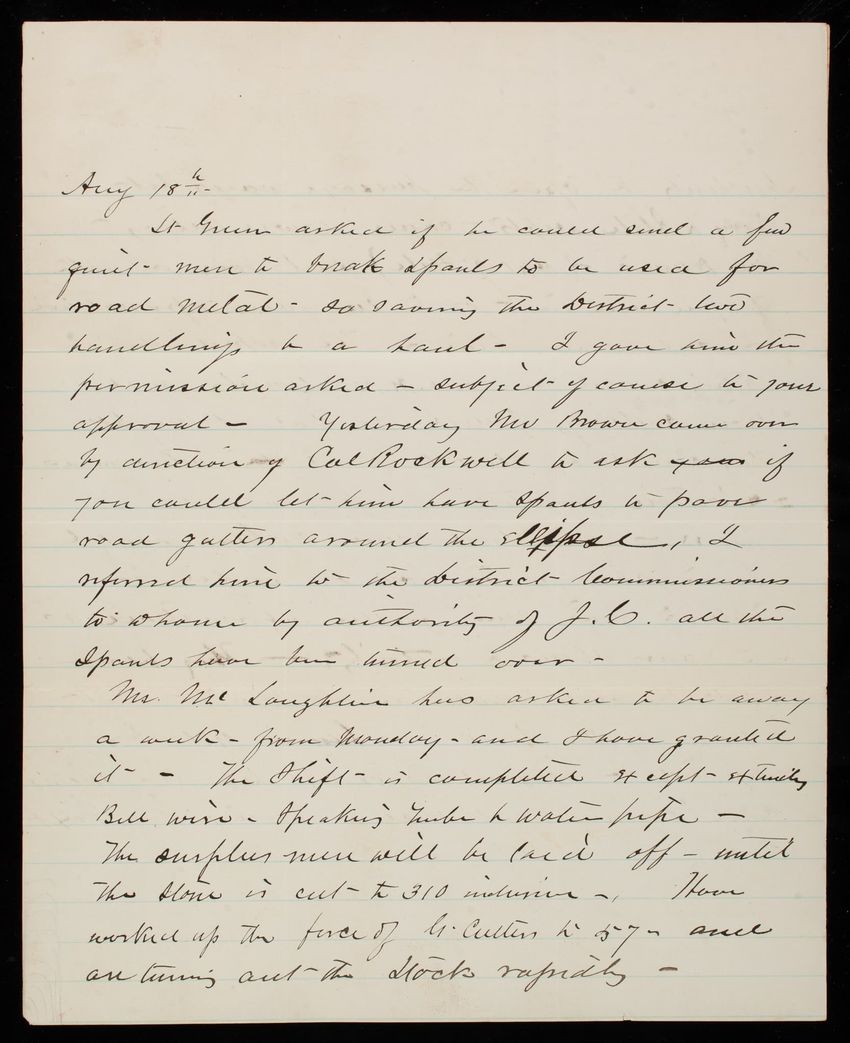 Aug 18th
Lt Green asked if he could send a few
quiet men to break spauls to be used for
road metal - so saving the District two
handlings & a haul - I gave him the
permission asked - subject of course to your
approval - Yesterday Mr Brown came over
by direction of Col Rockwell to ask you if
you could let him have spauls to pave
road gutters around the ellipse, I
referred him to the District Commissioners
to whome by authority of J.C. all the
Spauls have been turned over -
Mr. McLaughlin has asked to be away
a week - from Monday - and I have granted
it - The Shift is completed except extending
Bell wire - Speaking tube & water pipe -
The surplus men will be laid off - until
the stone is cut to 310 inclusive - Have
worked up the force of G. Cutters to 57 - and
are turning out the Stock rapidly -